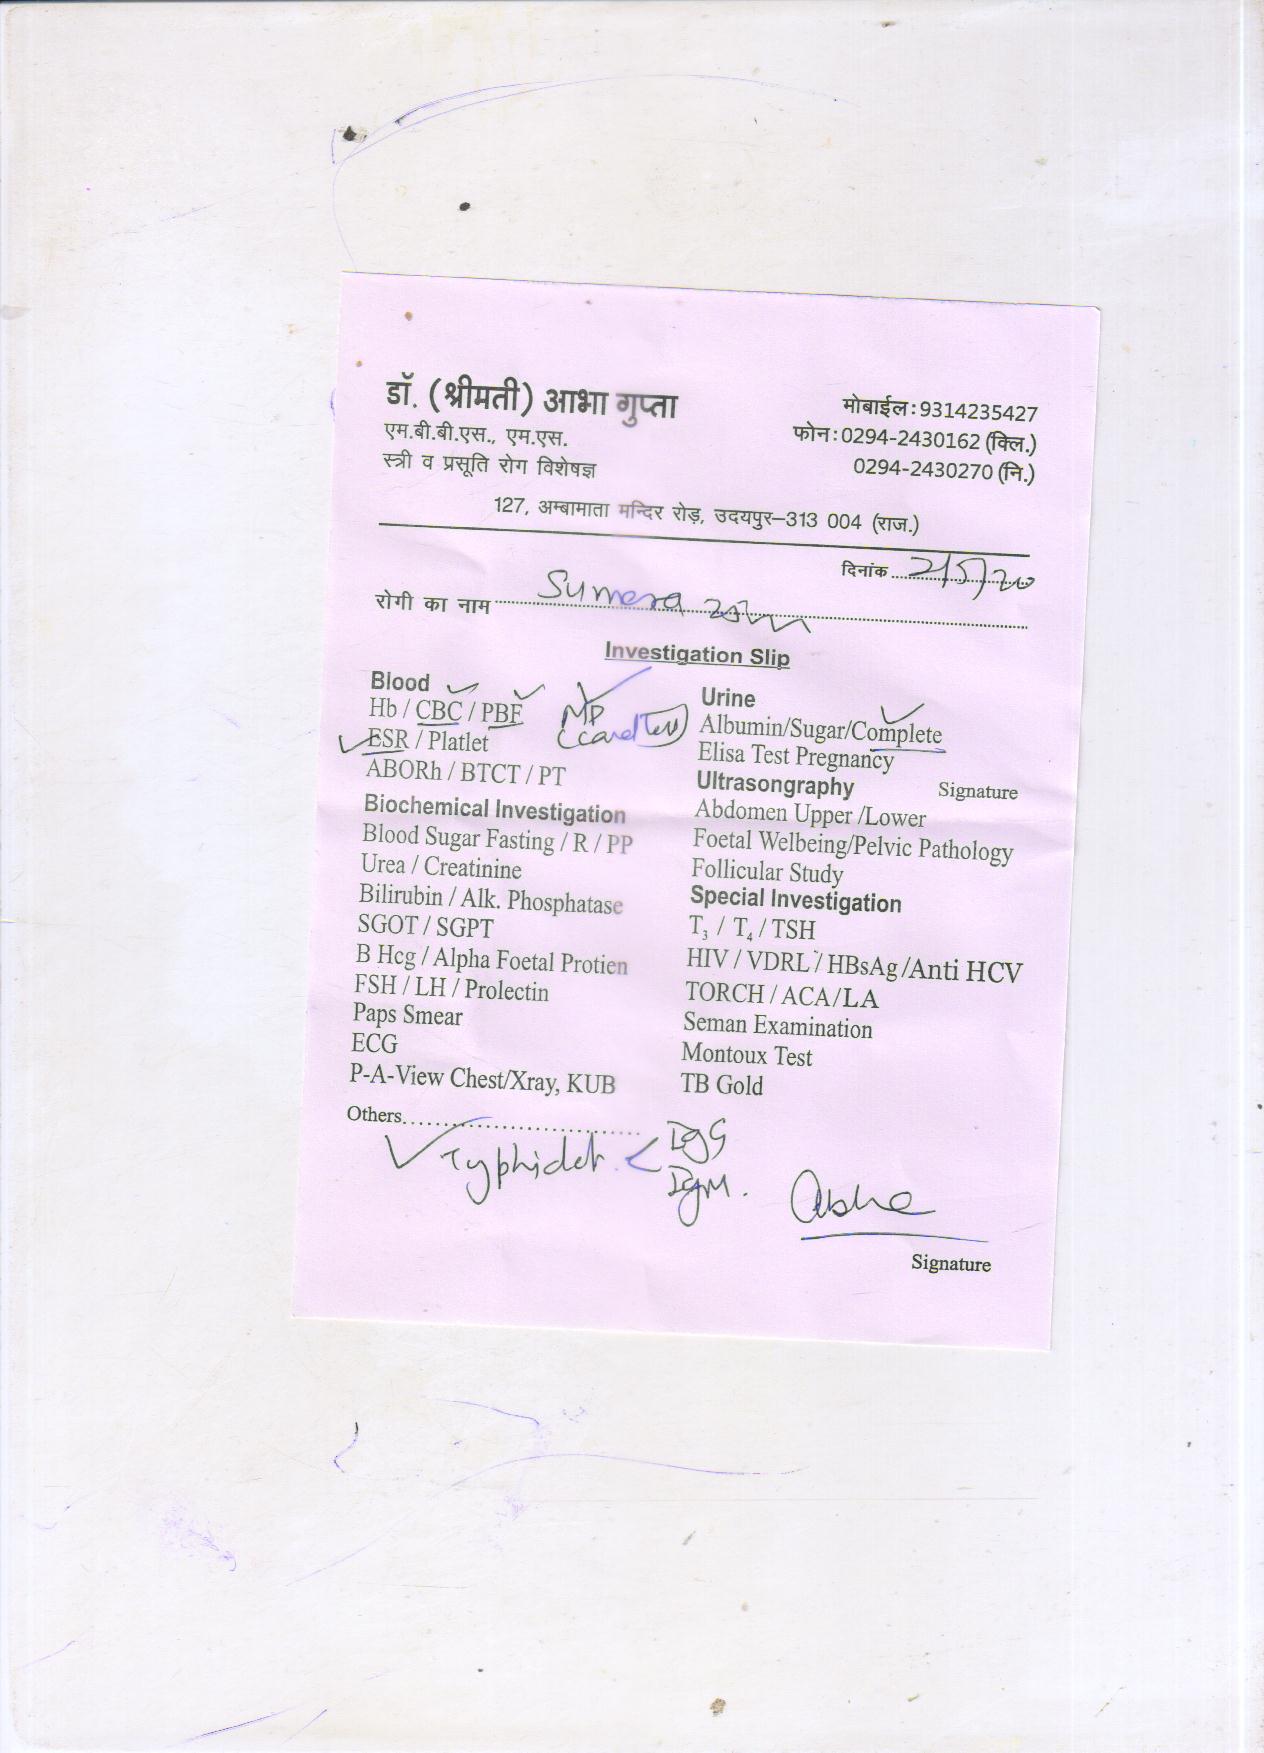 डॉ. (श्रीमती) आभा गुप्ता
एम.बी.बी.एस., एम.एस.
स्त्री व प्रसूति रोग विशेषज्ञ
मोबाईल: 9314235427
फोन: 0294-2430162 (क्लि.)
0294-2430270 (नि.)
127, अम्बामाता मन्दिर रोड़, उदयपुर–313 004 (राज.)
दिनांक 2/5/20
रोगी का नाम Sumera
Investigation Slip
Blood
Hb / CBC / PBF
ESR / Platlet
MP
(card Test)
ABORh / BTCT / PT
Biochemical Investigation
Blood Sugar Fasting / R / PP
Urea / Creatinine
Bilirubin / Alk. Phosphatase
SGOT / SGPT
B Hcg / Alpha Foetal Protien
FSH / LH / Prolectin
Paps Smear
ECG
P-A-View Chest/Xray, KUB
Urine
Albumin/Sugar/Complete
Elisa Test Pregnancy
Ultrasongraphy
Signature
Abdomen Upper /Lower
Foetal Welbeing/Pelvic Pathology
Follicular Study
Special Investigation
T3 / T4 / TSH
HIV / VDRL / HBsAg /Anti HCV
TORCH / ACA/LA
Seman Examination
Montoux Test
TB Gold
Others
Typhidot < IgG
IgM.
Abha
Signature